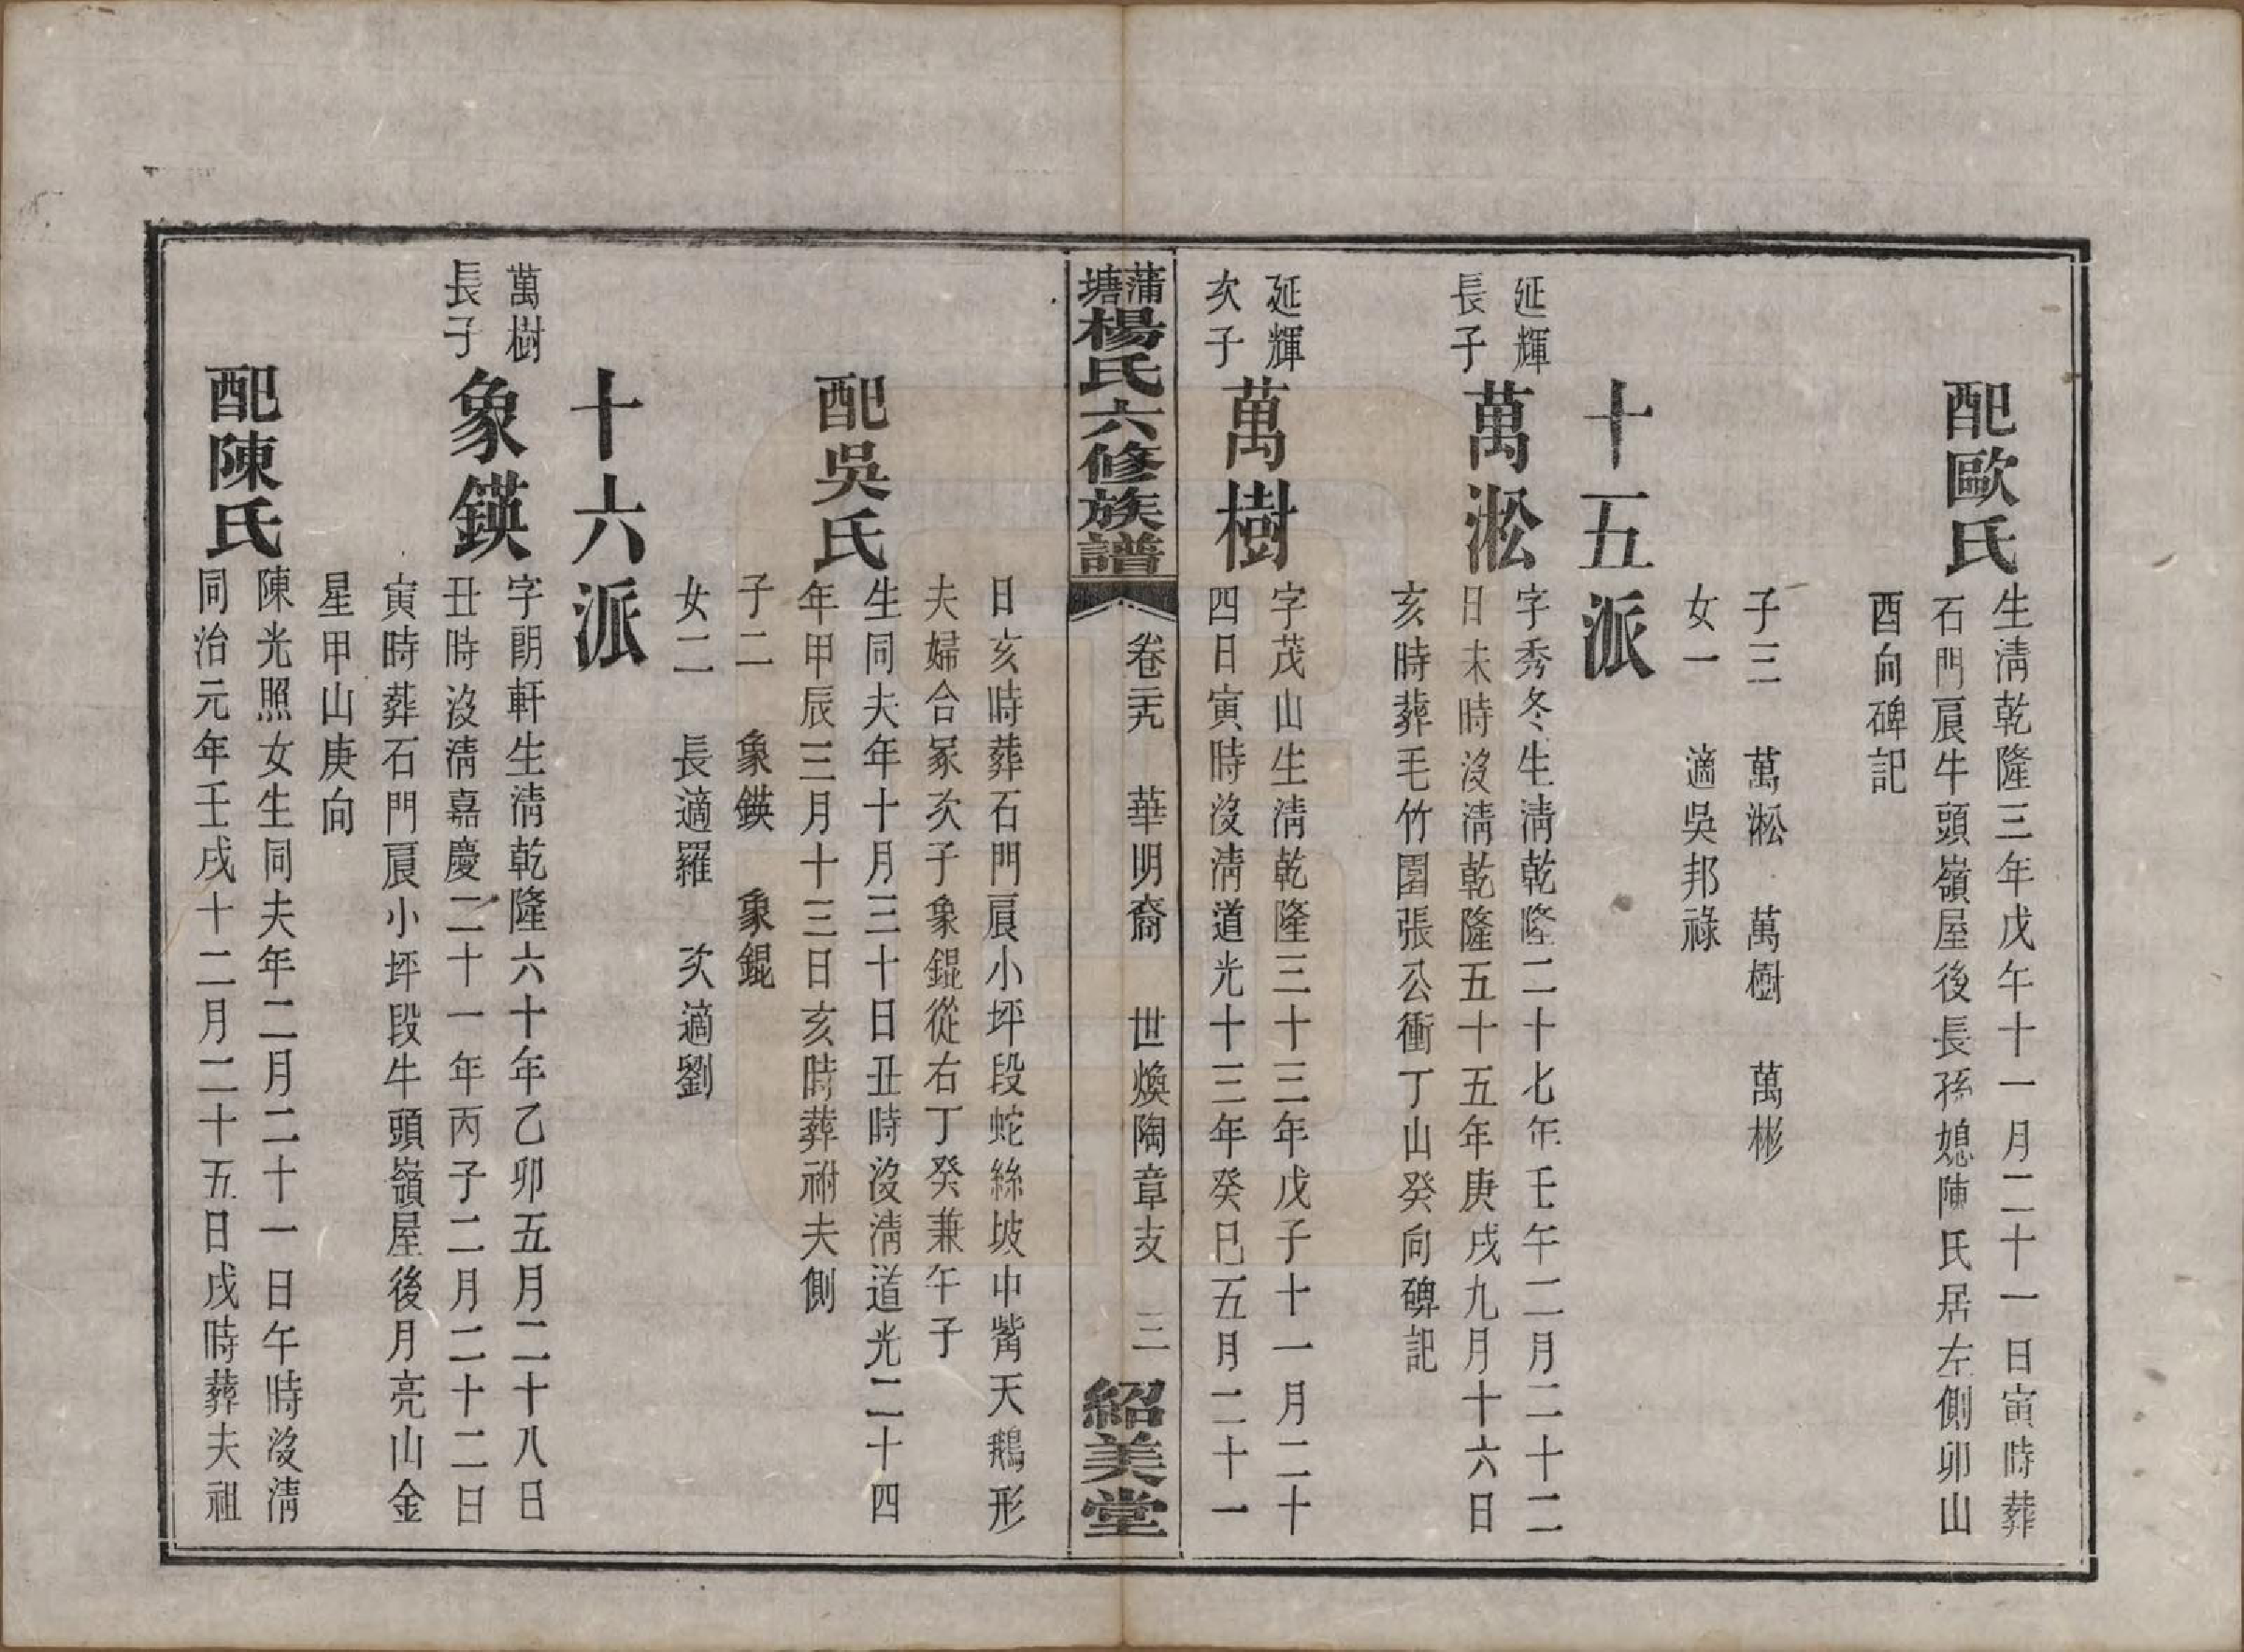 配歐氏
生淸乾隆三年戊午十一月二十一日寅時葬
石門𠩄牛頭嶺屋後長孫媳陳氏居左側卯山
酉向碑記
子三　萬淞　萬樹　萬彬
女一　適吳邦祿
十五派
延輝
長子
萬淞
字秀冬生淸乾隆二十七年壬午二月二十二
日未時沒淸乾隆五十五年庚戌九月十六日
亥時葬毛竹園張公衝丁山癸向碑記
延輝
次子
萬樹
字茂山生淸乾隆三十三年戊子十一月二十
四日寅時沒淸道光十三年癸巳五月二十一
蒲塘楊氏六修族譜　卷二十九　華明裔　世煥陶章支　三　紹美堂
日亥時葬石門𠩄小坪段蛇絲坡巾觜天鵝形
夫婦合冢次子象錕從右丁癸兼午子
配吳氏
生同夫年十月三十日丑時沒淸道光二十四
年甲辰三月十三日亥時葬祔夫側
子二　象鍈　象錕
女二　長適羅　次適劉
十六派
萬樹
長子
象鍈
字朗軒生淸乾隆六十年乙卯五月二十八日
丑時沒淸嘉慶二十一年丙子二月二十二日
寅時葬石門𠩄小坪段牛頭嶺屋後月亮山金
星甲山庚向
配陳氏
陳光照女生同夫年二月二十一日午時沒淸
同治元年壬戌十二月二十五日戌時葬夫祖